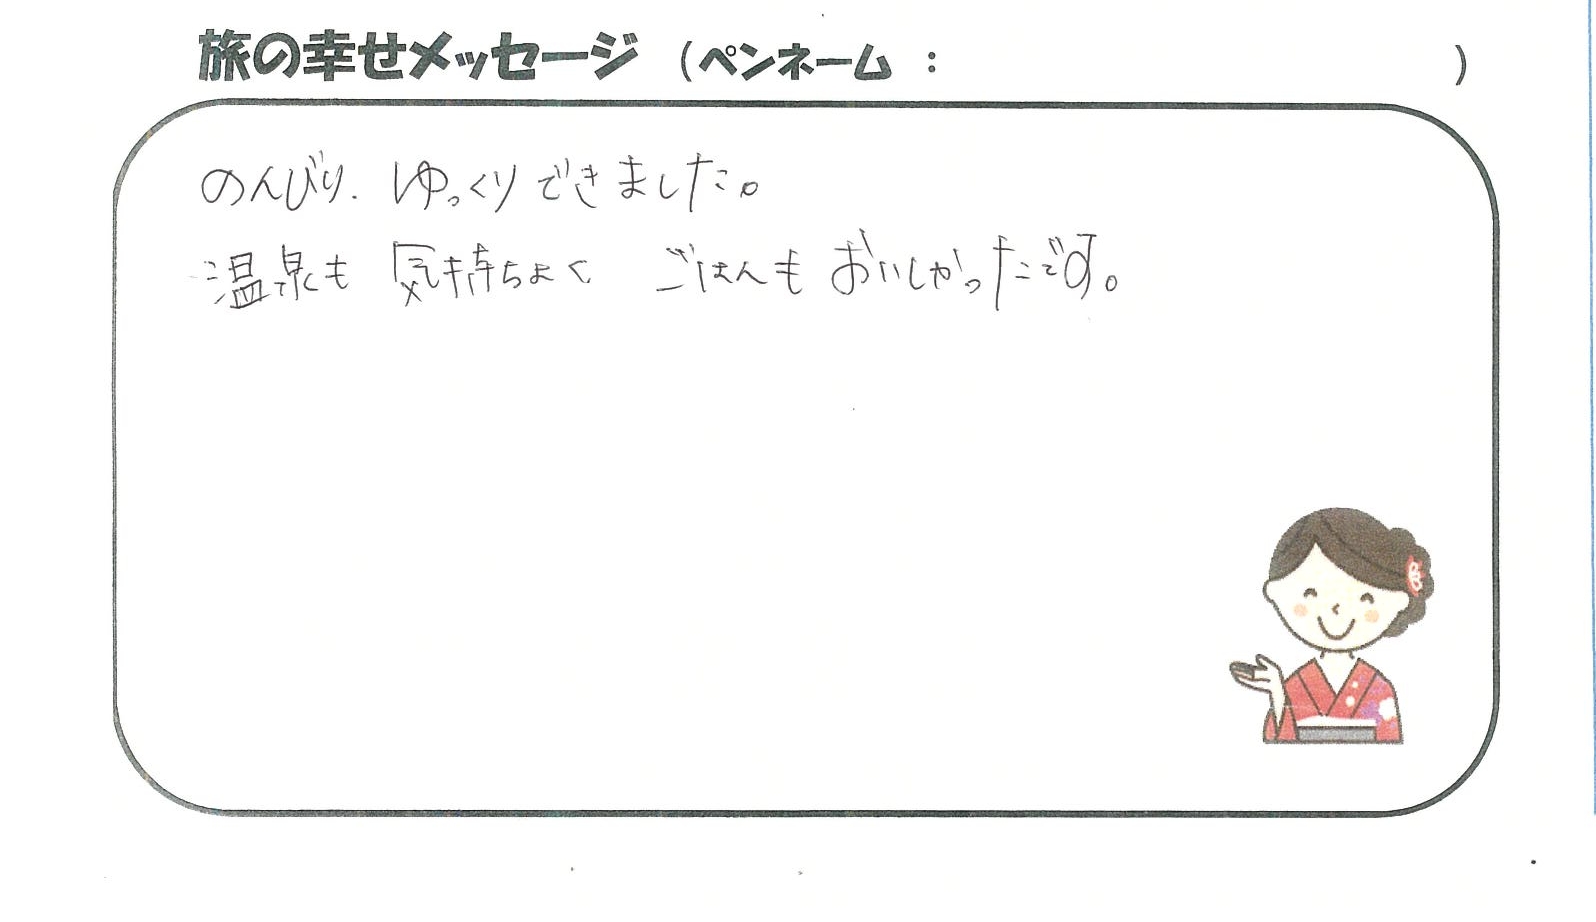 旅の幸せメッセージ （ペンネーム ： ）
のんびり、ゆっくりできました。
温泉も 気持ちよく ごはんも おいしかったです。